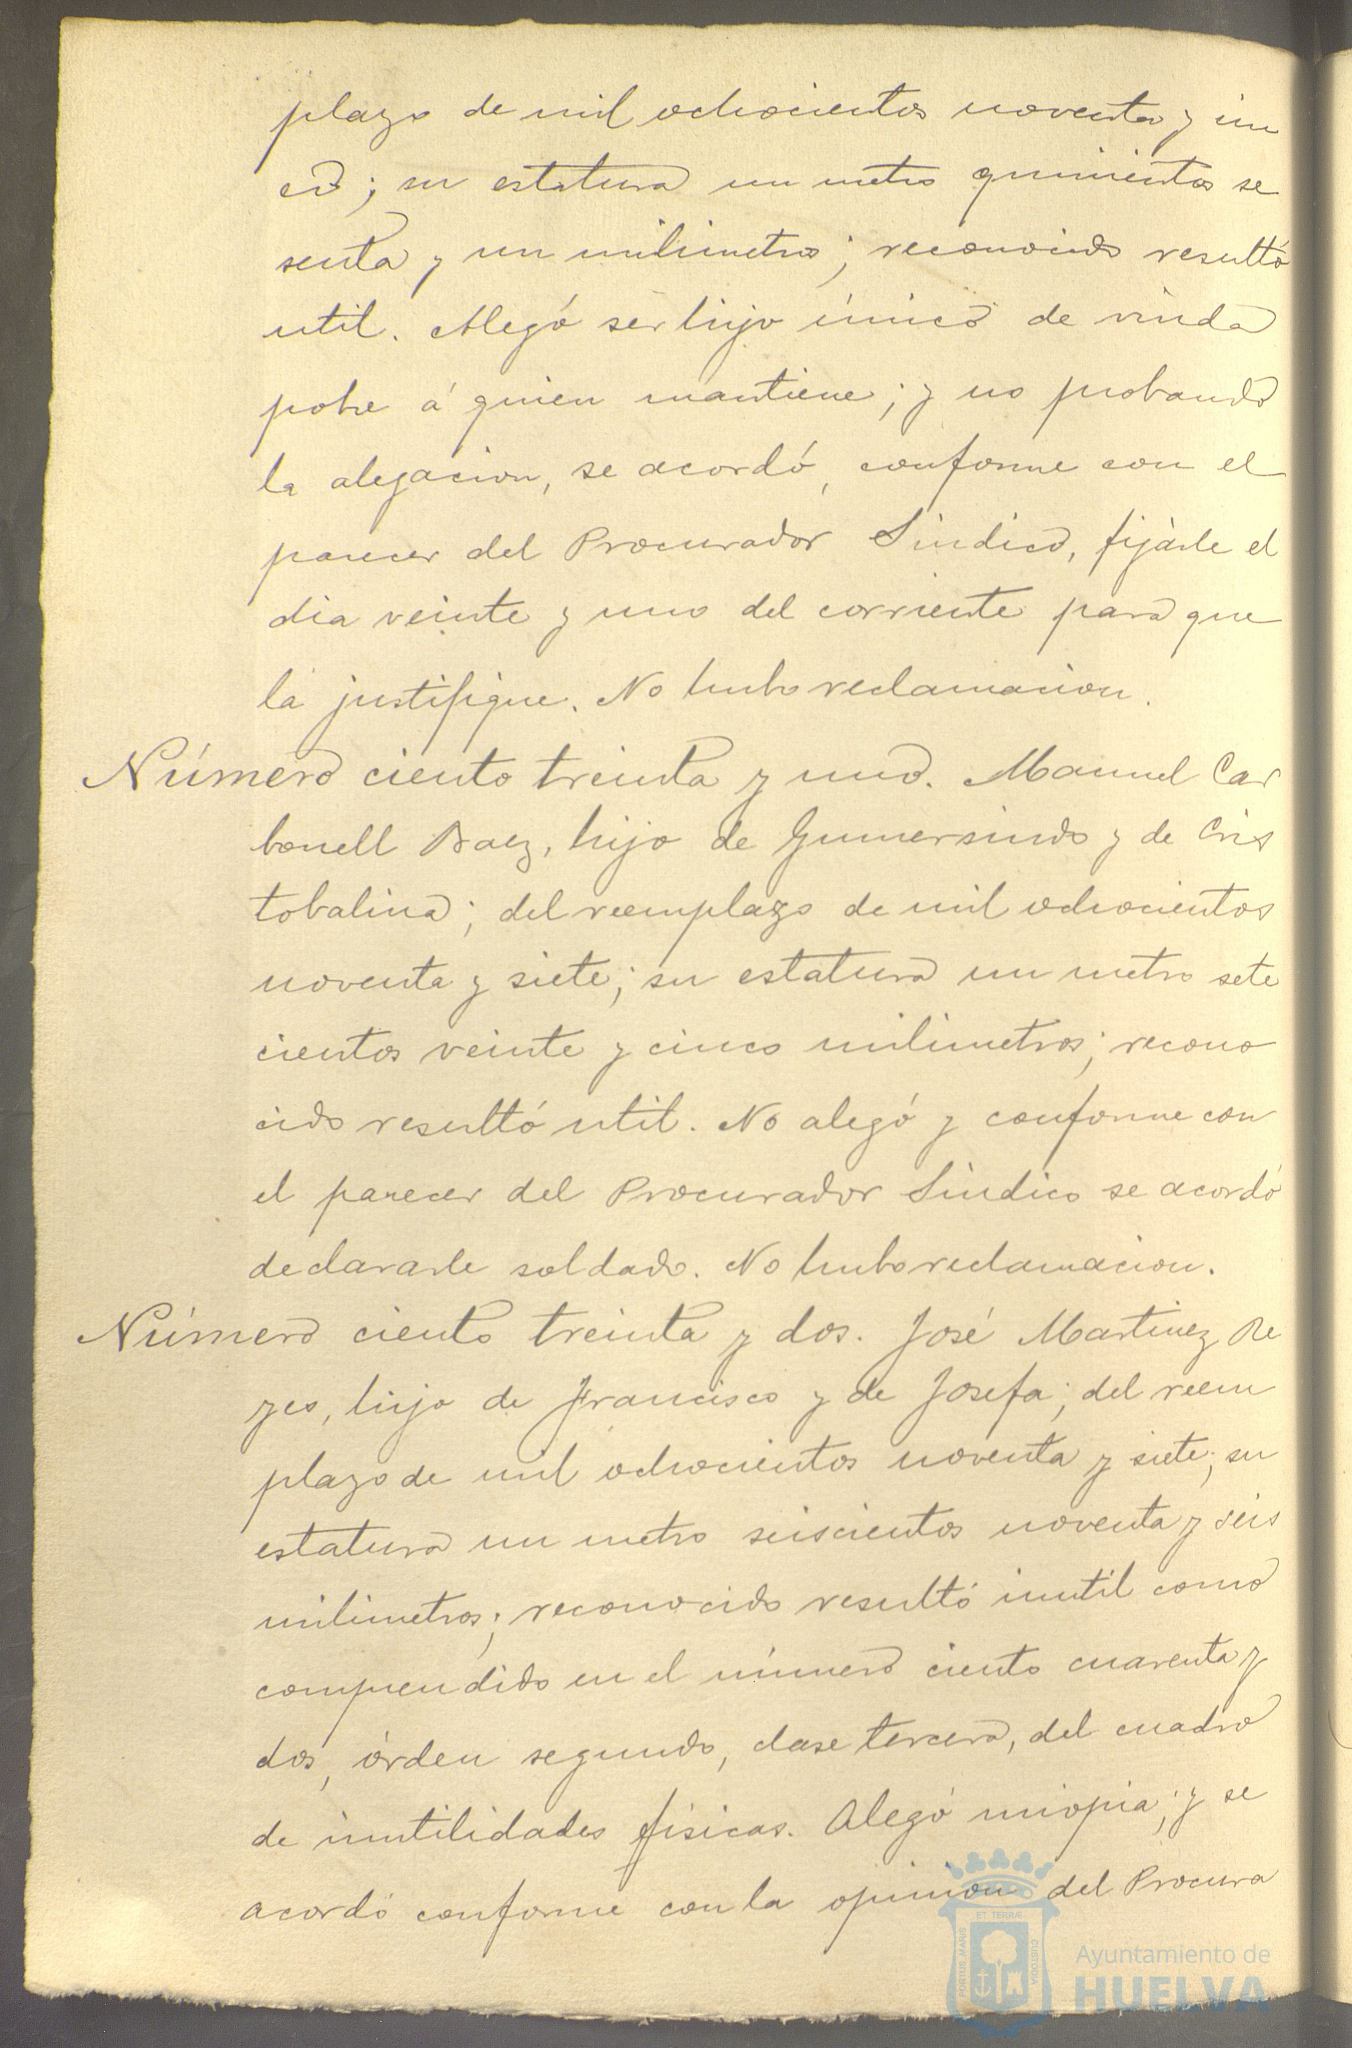 plazo de mil ochocientos noventa y cin
co; su estatura un metro quinientos se
senta y un milimetros; reconocido resultó
util. Alegó ser hijo único de viuda
pobre á quien mantiene; y no probando
la alegacion, se acordó, conforme con el
parecer del Procurador Sindico, fijarle el
dia veinte y uno del corriente para que
la justifique. No hubo reclamacion.
Número ciento treinta y uno. Manuel Car
bonell Baez, hijo de Gumersindo y de Cris
tobalina; del reemplazo de mil ochocientos
noventa y siete; su estatura un metro sete
cientos veinte y cinco milimetros; recono
cido resultó util. No alegó y conforme con
el parecer del Procurador Sindico se acordó
declararle soldado. No hubo reclamacion.
Número ciento treinta y dos. José Martinez Re
yes, hijo de Francisco y de Josefa; del reem
plazo de mil ochocientos noventa y siete; su
estatura un metro seiscientos noventa y seis
milimetros; reconocido resultó inutil como
comprendido en el número ciento cuarenta y
dos, órden segundo, clase tercera, del cuadro
de inutilidades físicas. Alegó miopia; y se
acordó conforme con la opinion del Procura
PORTUS MARIS ET TERRÆ CUSTODIA
Ayuntamiento de
HUELVA